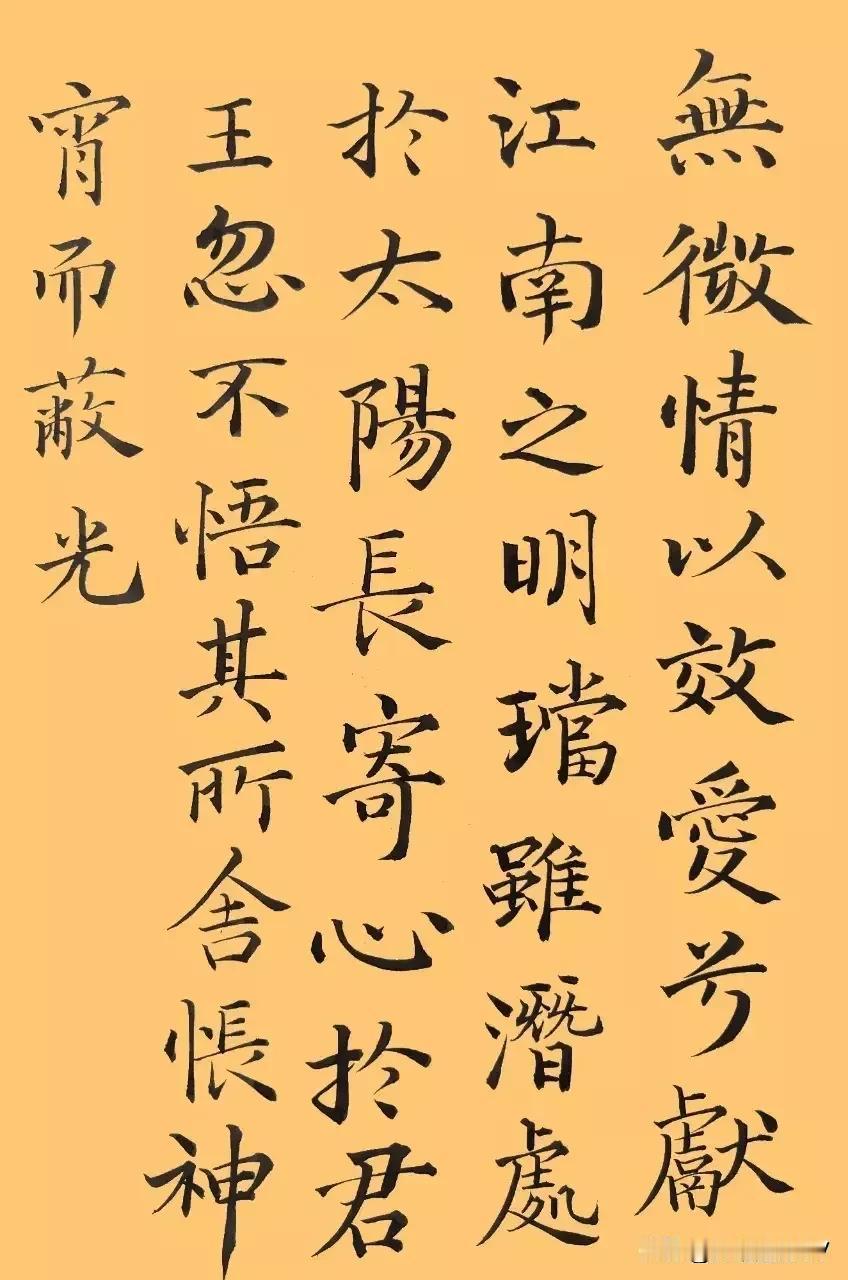 無微情以效愛兮獻
江南之明璫雖潛處
於太陽長寄心於君
王忽不悟其所舍悵神
宵而蔽光